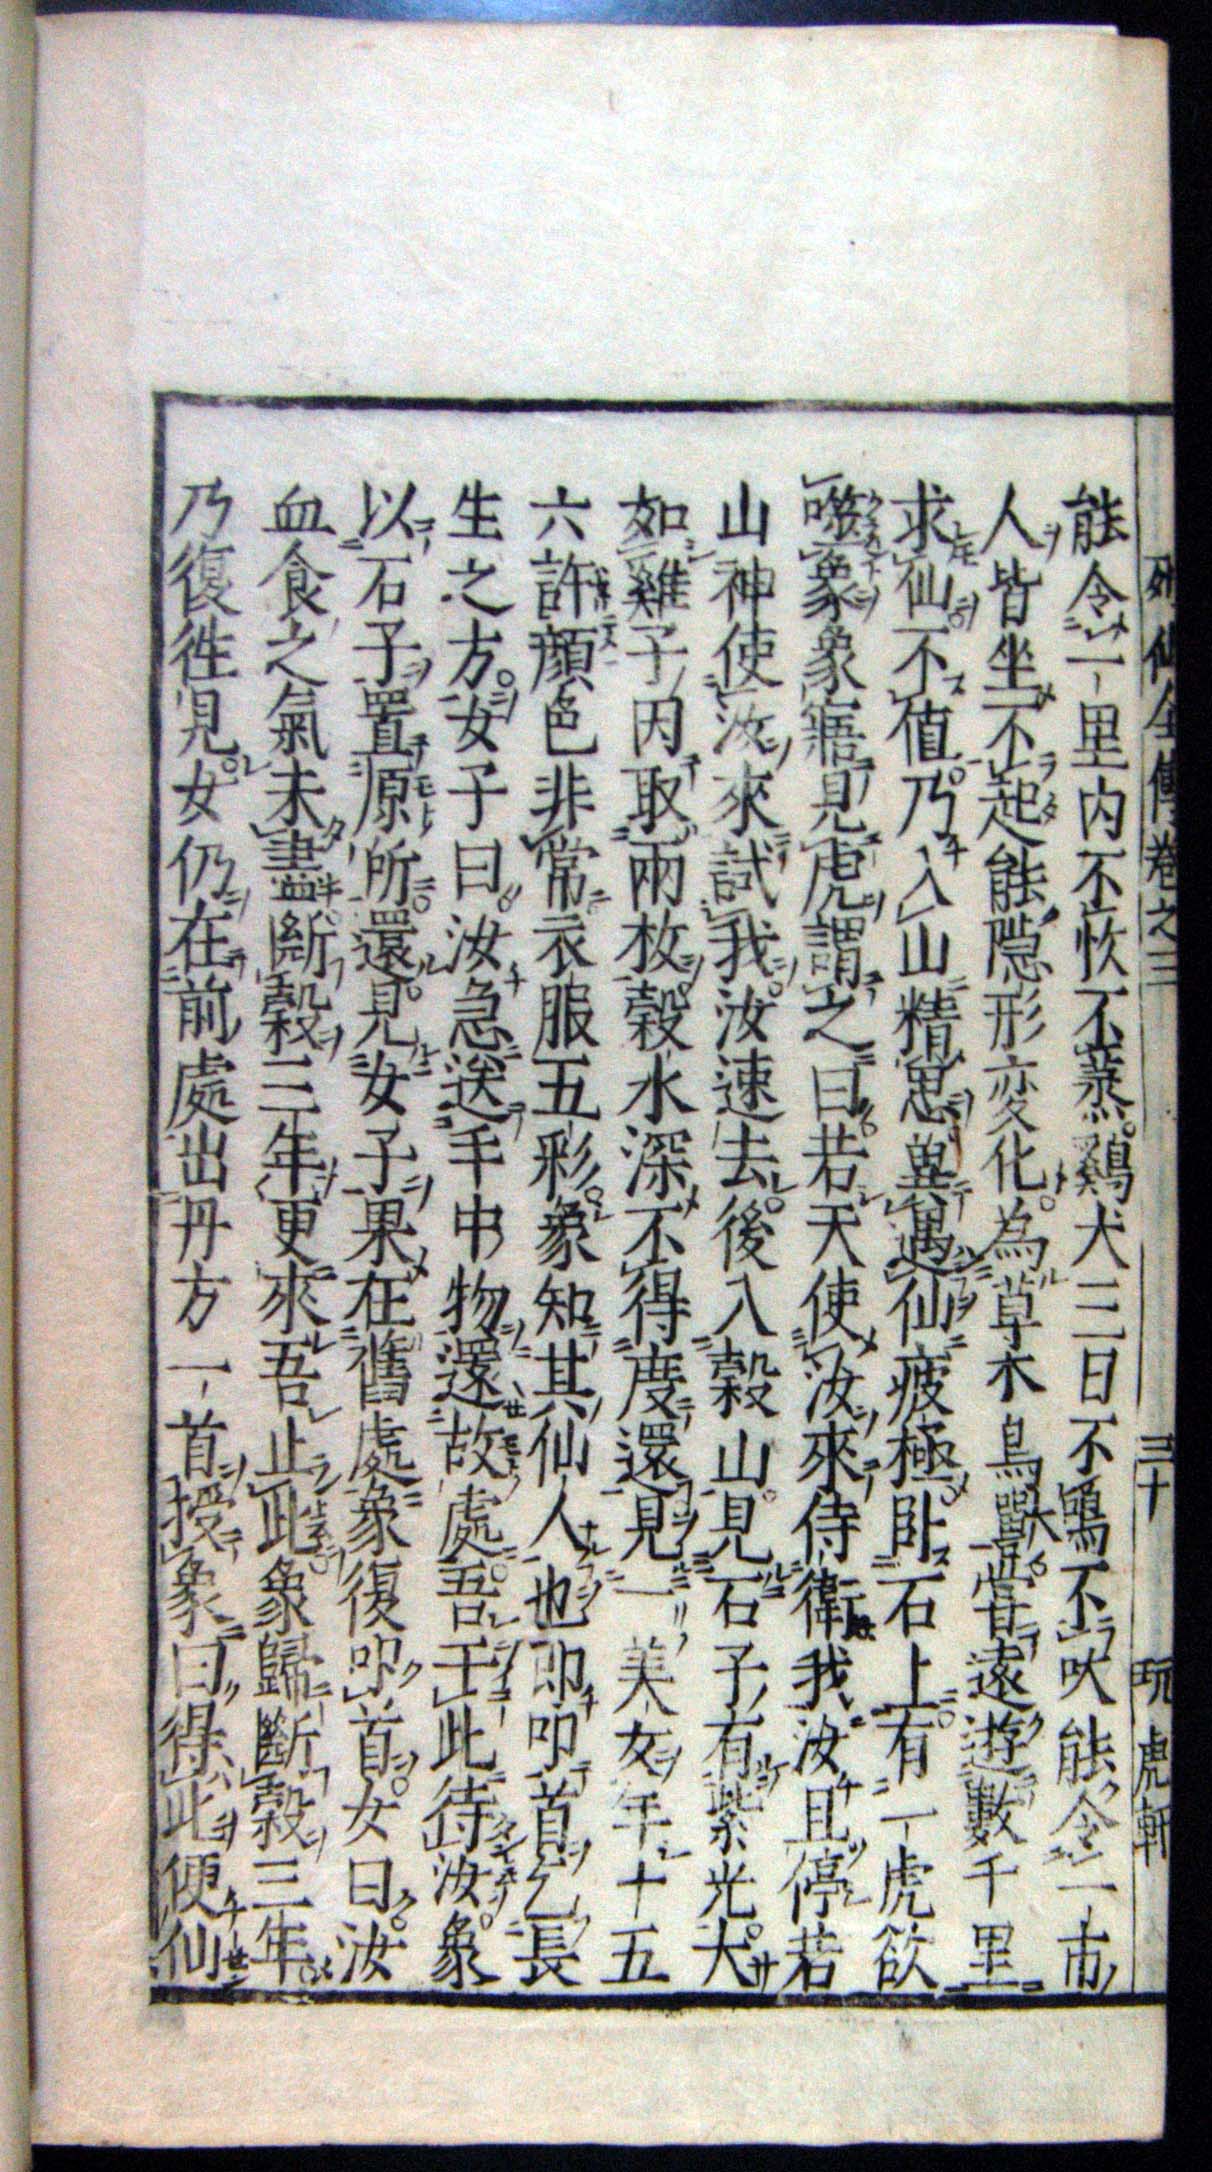 列仙全傳卷之三 三十 玩虎軒
能令一里内不炊不蒸鷄犬三日不鳴不吠能令一市
人皆坐不起能隠形変化為草木鳥獸嘗遠遊數千里
求仙不値乃入山精思兾遇仙疲極卧石上有一虎欲
噬象象寤見虎謂之曰若天使汝來侍衛我汝且停若
山神使汝來試我汝速去後入穀山見石子有紫光大
如雞子因取兩枚穀水深不得度還見一美女年十五
六許顔色非常衣服五彩象知其仙人也即叩首乞長
生之方女子曰汝急送手中物還故處吾于此待汝象
以石子置原所還見女子果在舊處象復叩首女曰汝
血食之氣未盡斷穀三年更來吾止此象歸斷穀三年
乃復徃見女仍在前處出丹方一首授象曰得此便仙